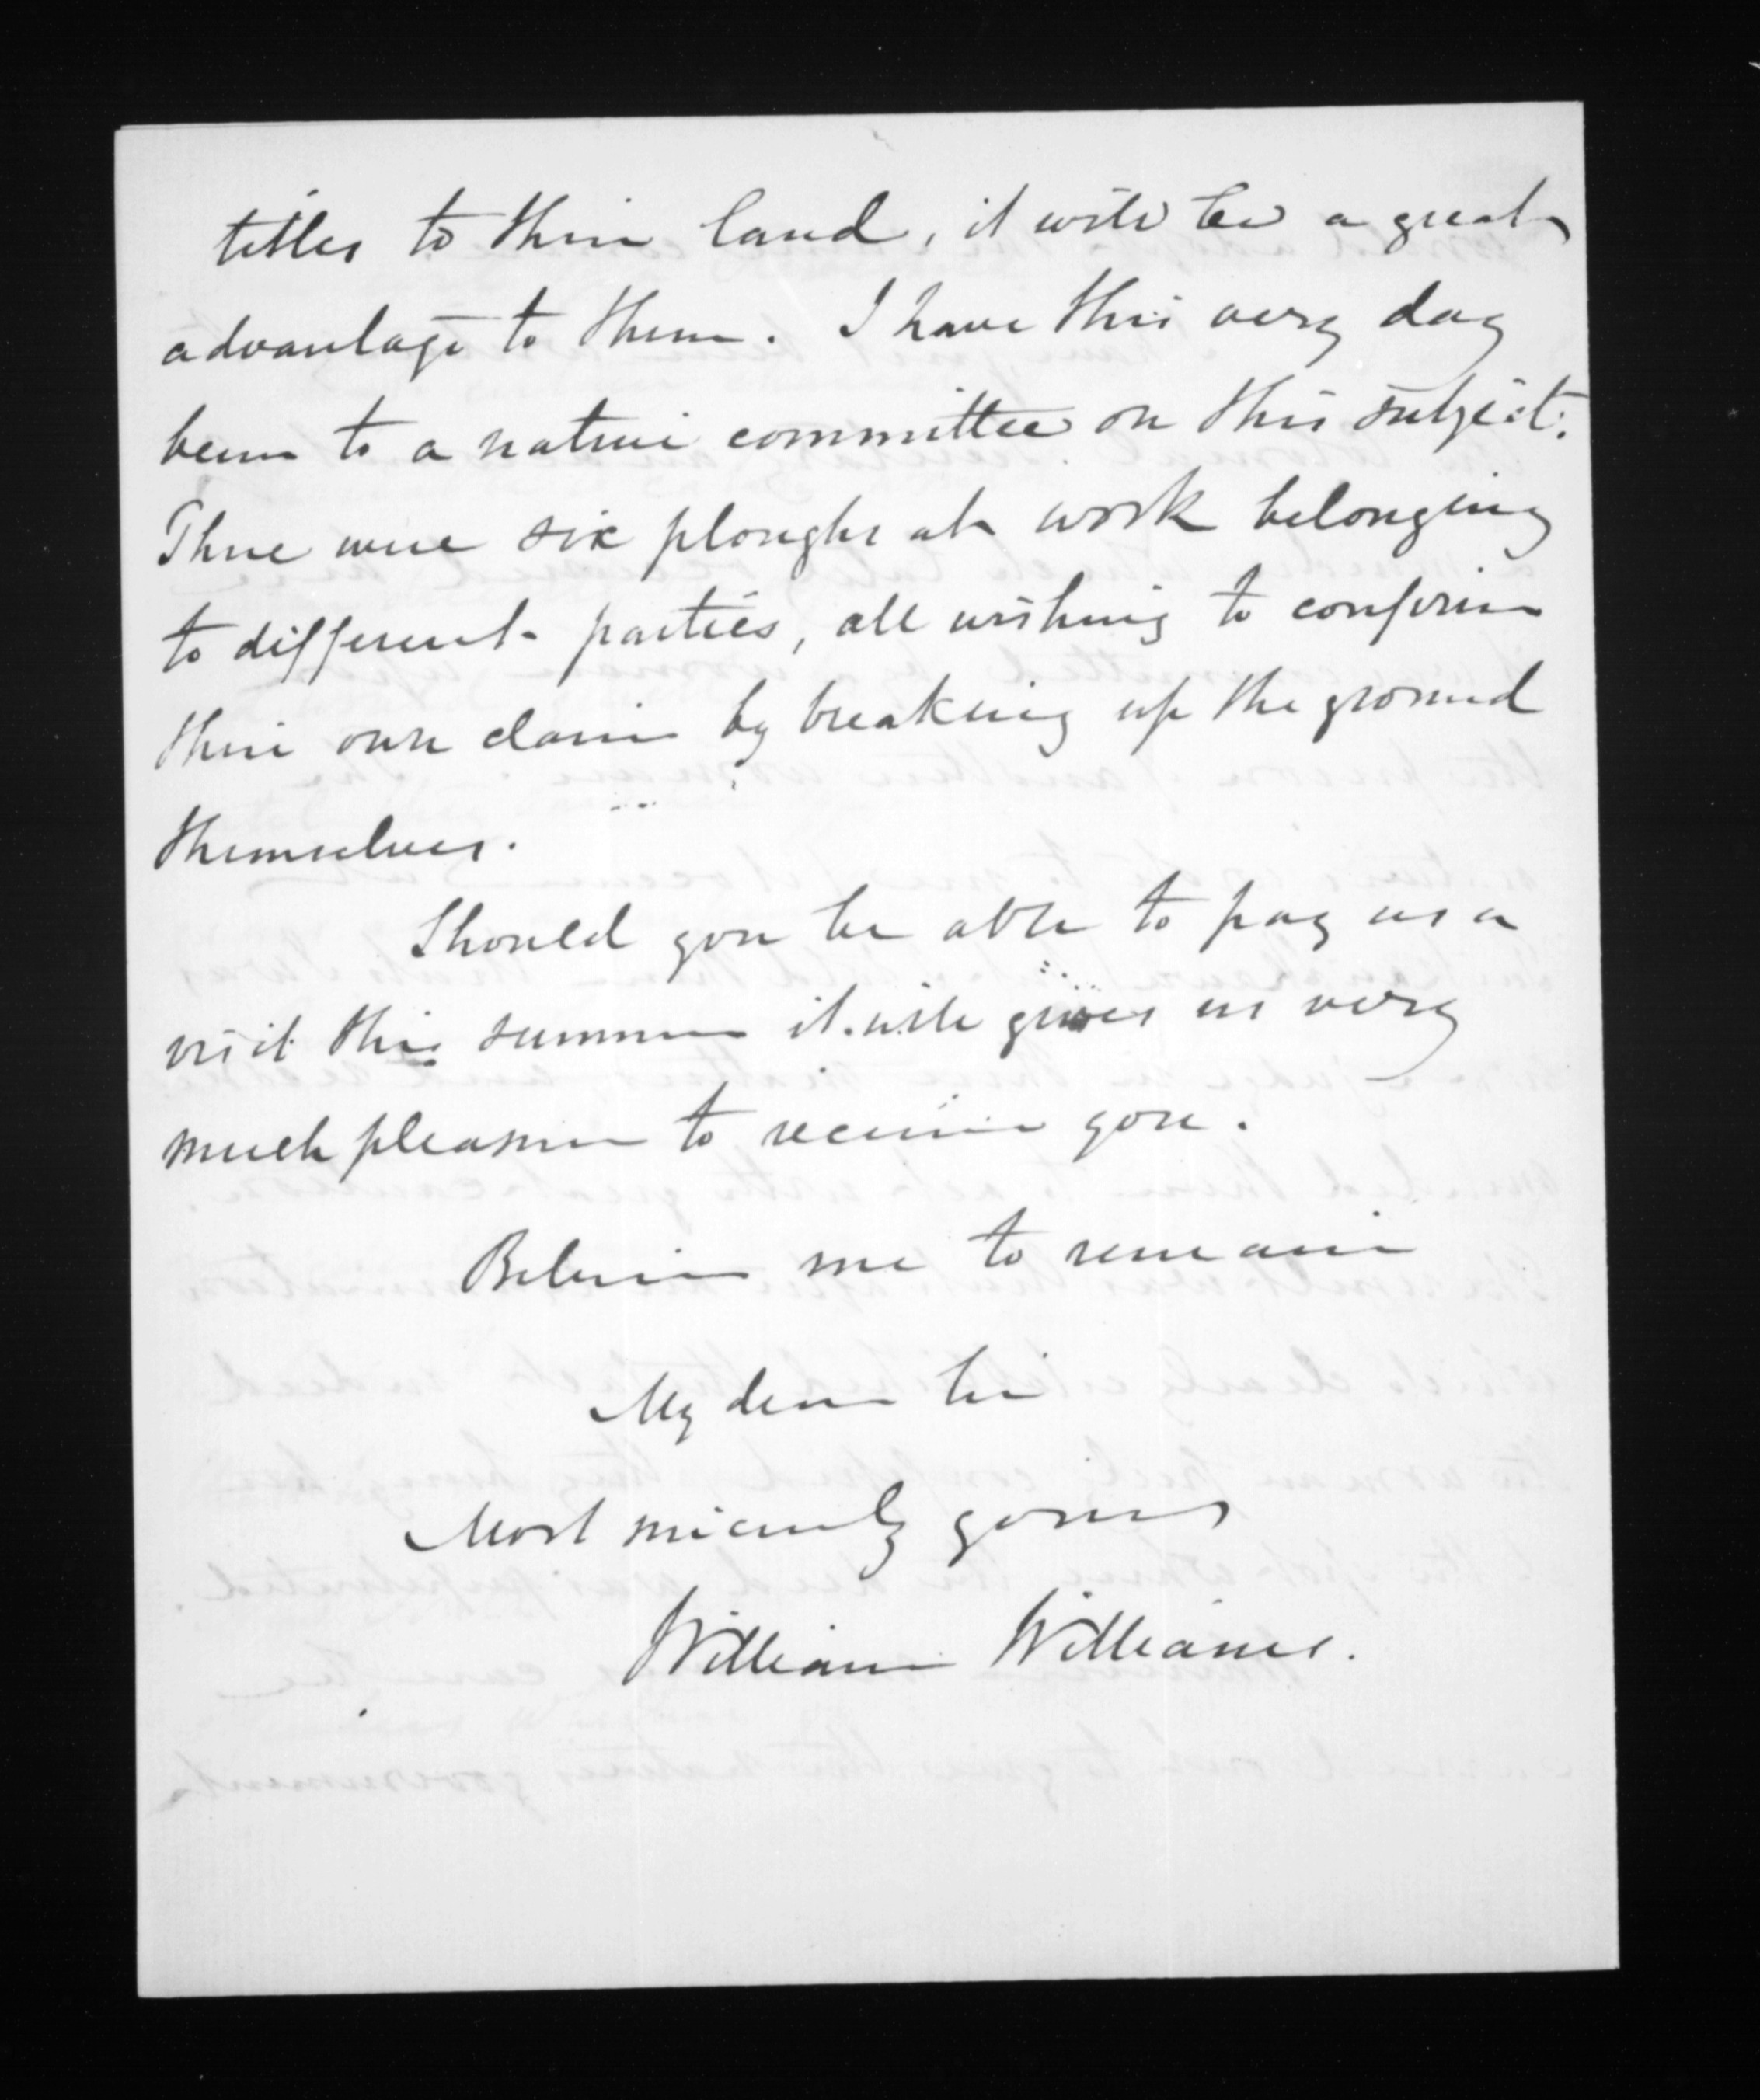 titles to their land, it will be a great
advantage to them. I have this very day
been to a native committee on this subject.
There were six ploughs at work belonging
to different parties, all wishing to confirm
their own claim by breaking up the ground
themselves.
Should you be able to pay us a
visit this summer it will give us very
much pleasure to receive you.
Believe me to remain
My dear Sir
Most sincerely yours
William Williams.